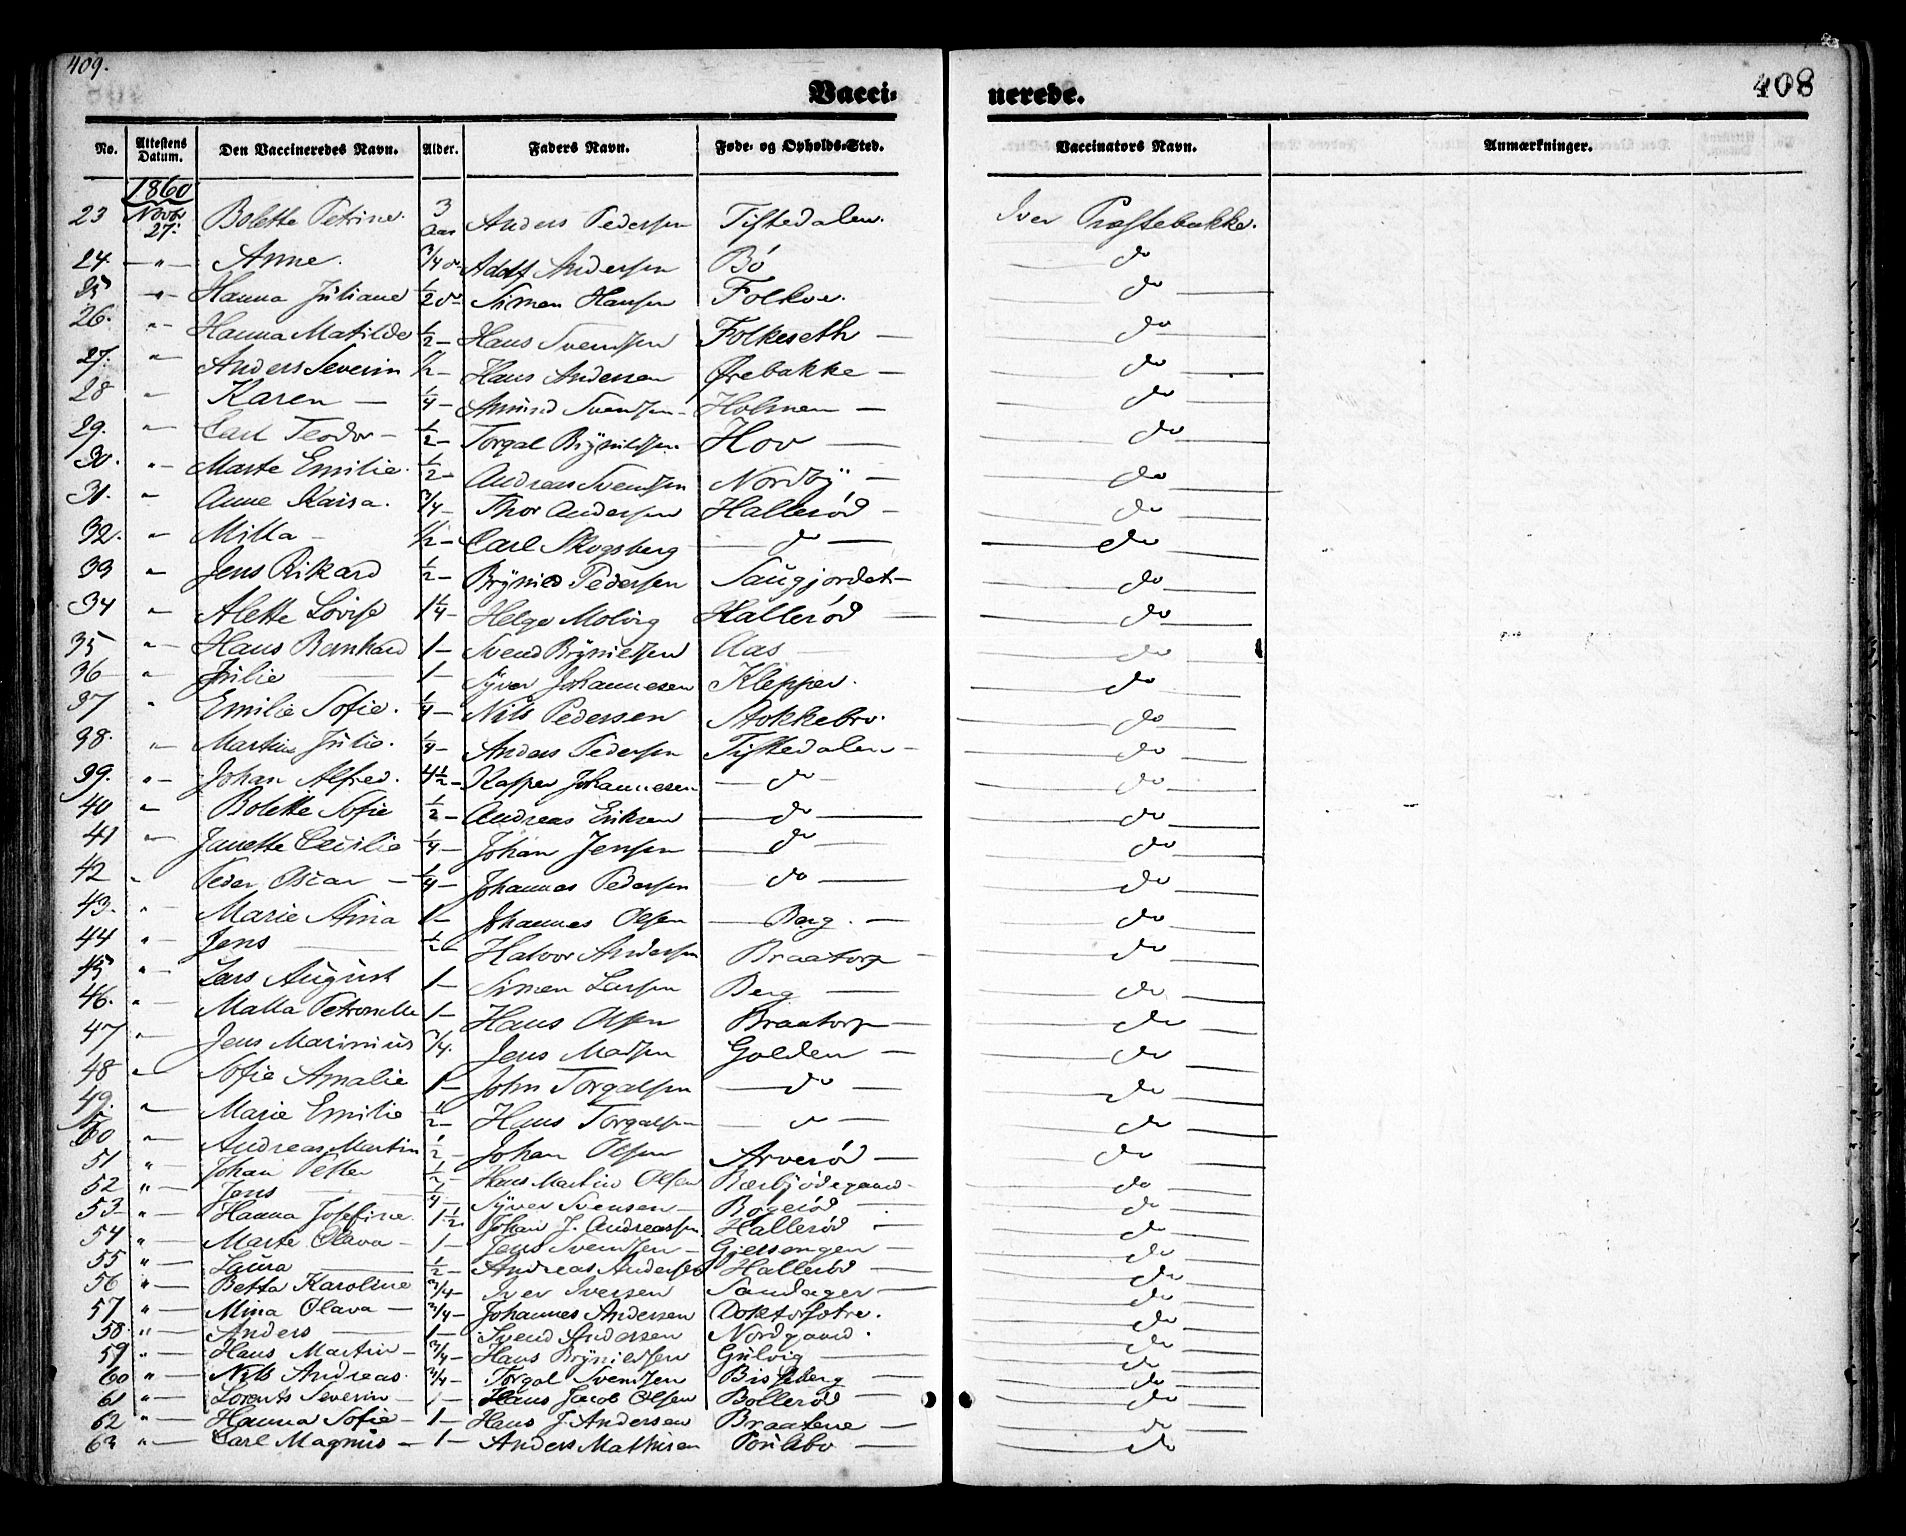 409.
408
Vacci- nerede.
No. Attestens Datum. Den Vaccineredes Navn. Alder. Faders Navn. Føde- og Opholds-Sted. Vaccinators Navn. Anmærkninger.
1860
23 Novbr 27. Bolette Petrine. 3 Aar Anders Pedersen Tistedalen. Iver Præstebakke.
24. " Anne. 3/4 Adolf Andersen Bø do
25 " Hanna Juliane 1/2 Simen Hansen Folkoe. do
26. " Hanna Matilde 1/2 – Hans Svendsen Folkeseth – do
27. " Anders Severin 1/2 – Hans Andersen Ørebakke – do
28 " Karen – 1/4 – Amund Svendsen – Holmen – do
29. " Carl Teodor – 1/2 – Torgal Brynildsen Hov – do
30. " Marte Emilie. 1/2 – Andreas Svendsen Nordby – do
31. " Anne Kaisa. 3/4 – Thor Andersen Hallerød – do
32. " Milla – 1/2 – Carl Skogsberg – do – do
33 " Jens Rikard 1/2 – Brynild Pedersen Saugjordet – do
34 " Alette Lovise 1 1/4 – Helge Molvig Hallerød – do
35 " Hans Bernhard 1 – Svend Brynildsen Aas – do
36 " Julie – 1 – Syver Johannesen Klepper. do
37 " Emilie Sofie. 1/4 – Nils Pedersen Stokkebro. do
38. " Martine Julie. 1/4 – Anders Pedersen Tistedalen – do
39. " Johan Alfred. 4 1/2 – Kasper Johannesen – do – do
40 " Bolette Sofie 1/2 – Andreas Eriksen – do – do
41 " Janette Cecilie 1/4 – Johan Jensen – do – do
42 " Peder Oscar – 1/4 – Johannes Pedersen – do – do
43. " Marie Stina 1 – Johannes Olsen – Berg. – do
44 " Jens – 1/2 – Halvor Andersen Braatorp – do
45 " Lars August 1 – Simen Larsen Berg – do
46. " Malla Petronelle 1 – Hans Olsen Braatorp – do
47 " Jens Marinius 3/4. Jens Madsen Golden – do
48 " Sofie Amalie 1 – John Torgalsen – do – do
49. " Marie Emilie 1/2 – Hans Torgalsen – do – do
50 " Andreas Martin 1/2 – Johan Olsen Arverød – do
51 " Johan Petter 1/2 – Hans Martin Olsen do
52 " Jens – Syver Svensen – Bøgerød – do
53 " Hanna Josefine 1 1/2 Johan J. Andreassen Hallerød – do
54 " Marte Olava – 1 – Jens Svendsen – Gjersengen – do
55 " Laura – 1/2 – Andreas Andersen Hallerød – do
56 " Betta Karoline 3/4 – Iver Iversen Sandager – do
57 " Mina Olava – 3/4 – Johannes Andersen Doktorsætre. do
58. " Anders – 1 – Svend Andersen Nordgaard. do
59 " Hans Martin – 3/4 – Hans Brynildsen Gulvig – do
60 " Nils Andreas. 3/4 – Torgal Svendsen Bisseberg – do
61 " Lorents Severin – 1 – Hans Jacob Olsen Bollerød – do
62 " Hanna Sofie – 1 – Hans J. Andersen Braatene – do
63 " Carl Magnus – 1 – Anders Mathisen – do